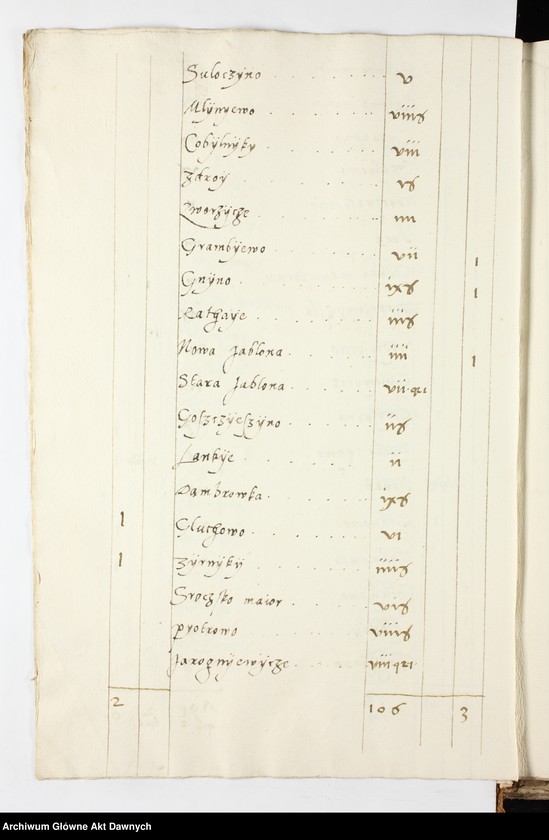 Suloczyno . . . . . . v
Mlynyewo . . . . . . viiiß
Cobylnyky . . . . . . viii
Zdroy . . . . . . vß
Zworzycze . . . . . iiii
Grambyewo . . . . . vii 1
Gnyno . . . . . . ixß 1
Rathaye . . . . . . iiiß
Nowa Jablona . . . . iiii 1
Stara Jablona . . . . vii qr1
Goszczyeszyno . . . . iiß
Lankye . . . . . ii
Dambrowka . . . . . ixß
1 Gluchowo . . . . . . vi
1 Zyrnyky . . . . . . iiiiß
Sroczko maior . . . . viß
Pyotrowo . . . . . . viiiß
Jarognyewycze . . . . viii qr1
2 106 3
Archiwum Główne Akt Dawnych